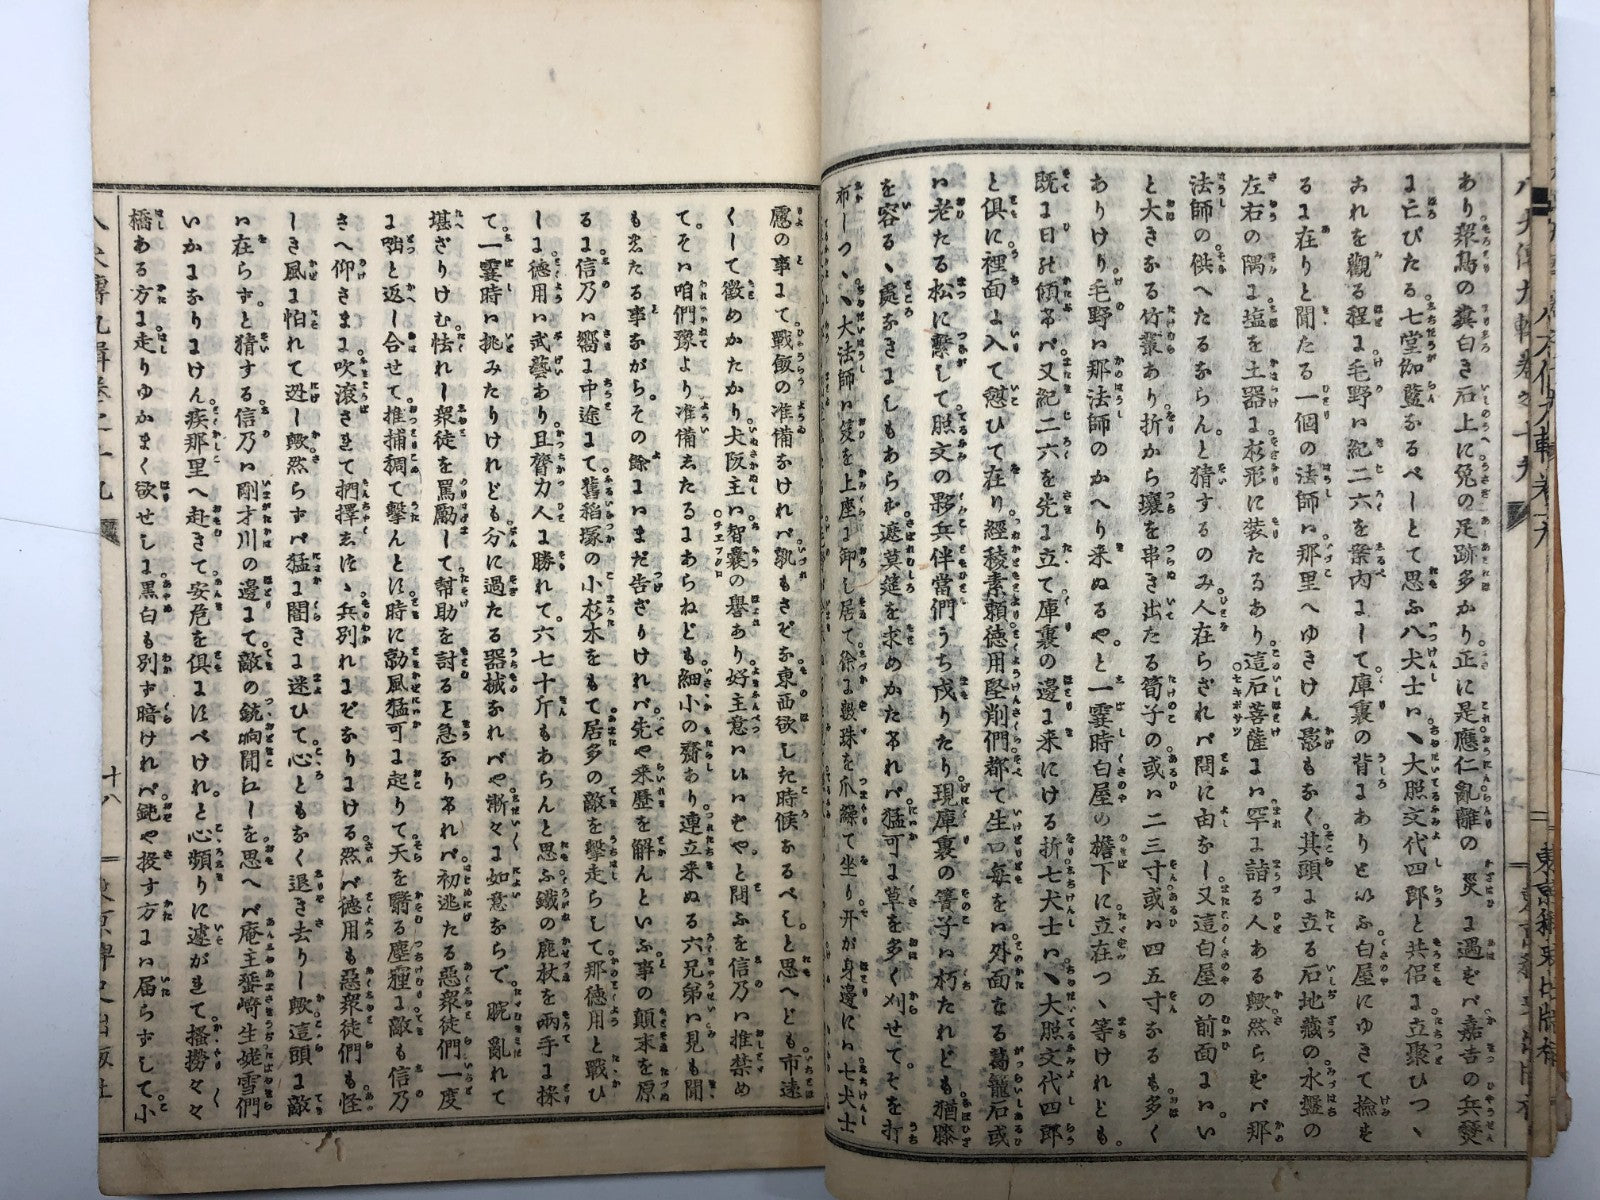 あり衆鳥の糞白き石上に兔の足跡多かり。正に是應仁亂離の災に遇ずバ嘉吉の兵燹
に亡びたる七堂伽藍なるべしとて思ふ八犬士ハ、大照文代四郎と共侶に立聚ひつゝ
おれを觀る程に毛野ハ紀二六を案内にして庫裏の背にありといふ白屋にゆきて撿を
るに在りと聞たる一個の法師ハ那里へゆきけん影もなく其頭に立る石地藏の水盤の
左右の隅に塩を土器に杉形に装たるあり。這石菩薩にハ罕に詣る人ある歟然らずバ那
法師の供へたるならんと猜するのみ人在らざれバ問に由なし又這白屋の前面にハい
と大きなる竹叢あり折から壤を串き出たる筍子の或ハ二三寸或ハ四五寸なるも多く
ありけり毛野ハ那法師のかへり来ぬるや。と一霎時白屋の檐下に立在つゝ等けれども。
既に日も傾きバ又紀二六を先に立て庫裏の邊に来にける折七犬士ハ、大照文代四郎
と倶に裡面に入て憩ひて在り經稜素頼徳用堅削們都て生口毎をハ外面なる葛籠石或
ハ老たる松に繋して照文の夥兵伴當們うち戍りたり現庫裏の簀子ハ朽たれども猶膝
を容るゝ處なきにしもあらね遮莫筵を求めかたけれバ猛可に草を多く刈せて。そを打
布しつゝ、大法師ハ笈を上座に卸し居て徐に數珠を爪繰て坐り开が身邊にハ七犬士
愿の事にて戰飯の准備なけれバ孰もさぞな東西欲しき時候なるべし。と思へども市遠
くして徴めかたかり。犬阪主ハ智嚢の譽あり好主意ハいハいぞや。と問ふを信乃ハ推禁め
て。そハ咱們豫より准備したるにあらねども細小の齎あり。連立来ぬる六兄弟ハ見も聞
も為たる事ながら。その餘にハまだ告ざりけれバ先や来歴を解んといふ事の顛末を原
るに信乃ハ嚮に中途にて舊稻塚の小杉木をもて居多の敵を撃走らして那徳用と戰ひ
しに徳用ハ武藝あり且膂力人に勝れて。六七十斤もあらんと思ふ鐵の鹿杖を兩手に拿
て。一霎時ハ挑みたりけれども分に過たる器械なれバや漸々に如意ならで。腕亂れて
堪ざりけむ怯れし衆徒を罵勵して幇助を討ると急なりけれバ初逃たる惡衆徒們一度
に咄と返し合せて推捕稠て撃んとに時に勍風猛可に起りて天を翳る塵霾に敵も信乃
さへ仰さまに吹滾されて捫擇ゑにゝ兵別れにぞなりにける然バ徳用も惡衆徒們も怪
しき風に怕れて迯し歟然らずバ猛に闇きに迷ひて心ともなく退き去りし歟這頭に敵
ハ在らず。と猜する信乃ハ剛才川の邊にて敵の銃响聞江しを思へバ庵主蜑崎生姥雪們
いかになりにけん疾那里へ赴きて安危を倶にすべけれ。と心頻りに遽がれて掻撈々々
橋ある方に走りゆかまく欲せしに黒白も別ず暗けれバ鈍や投す方にハ届らずして小
十八